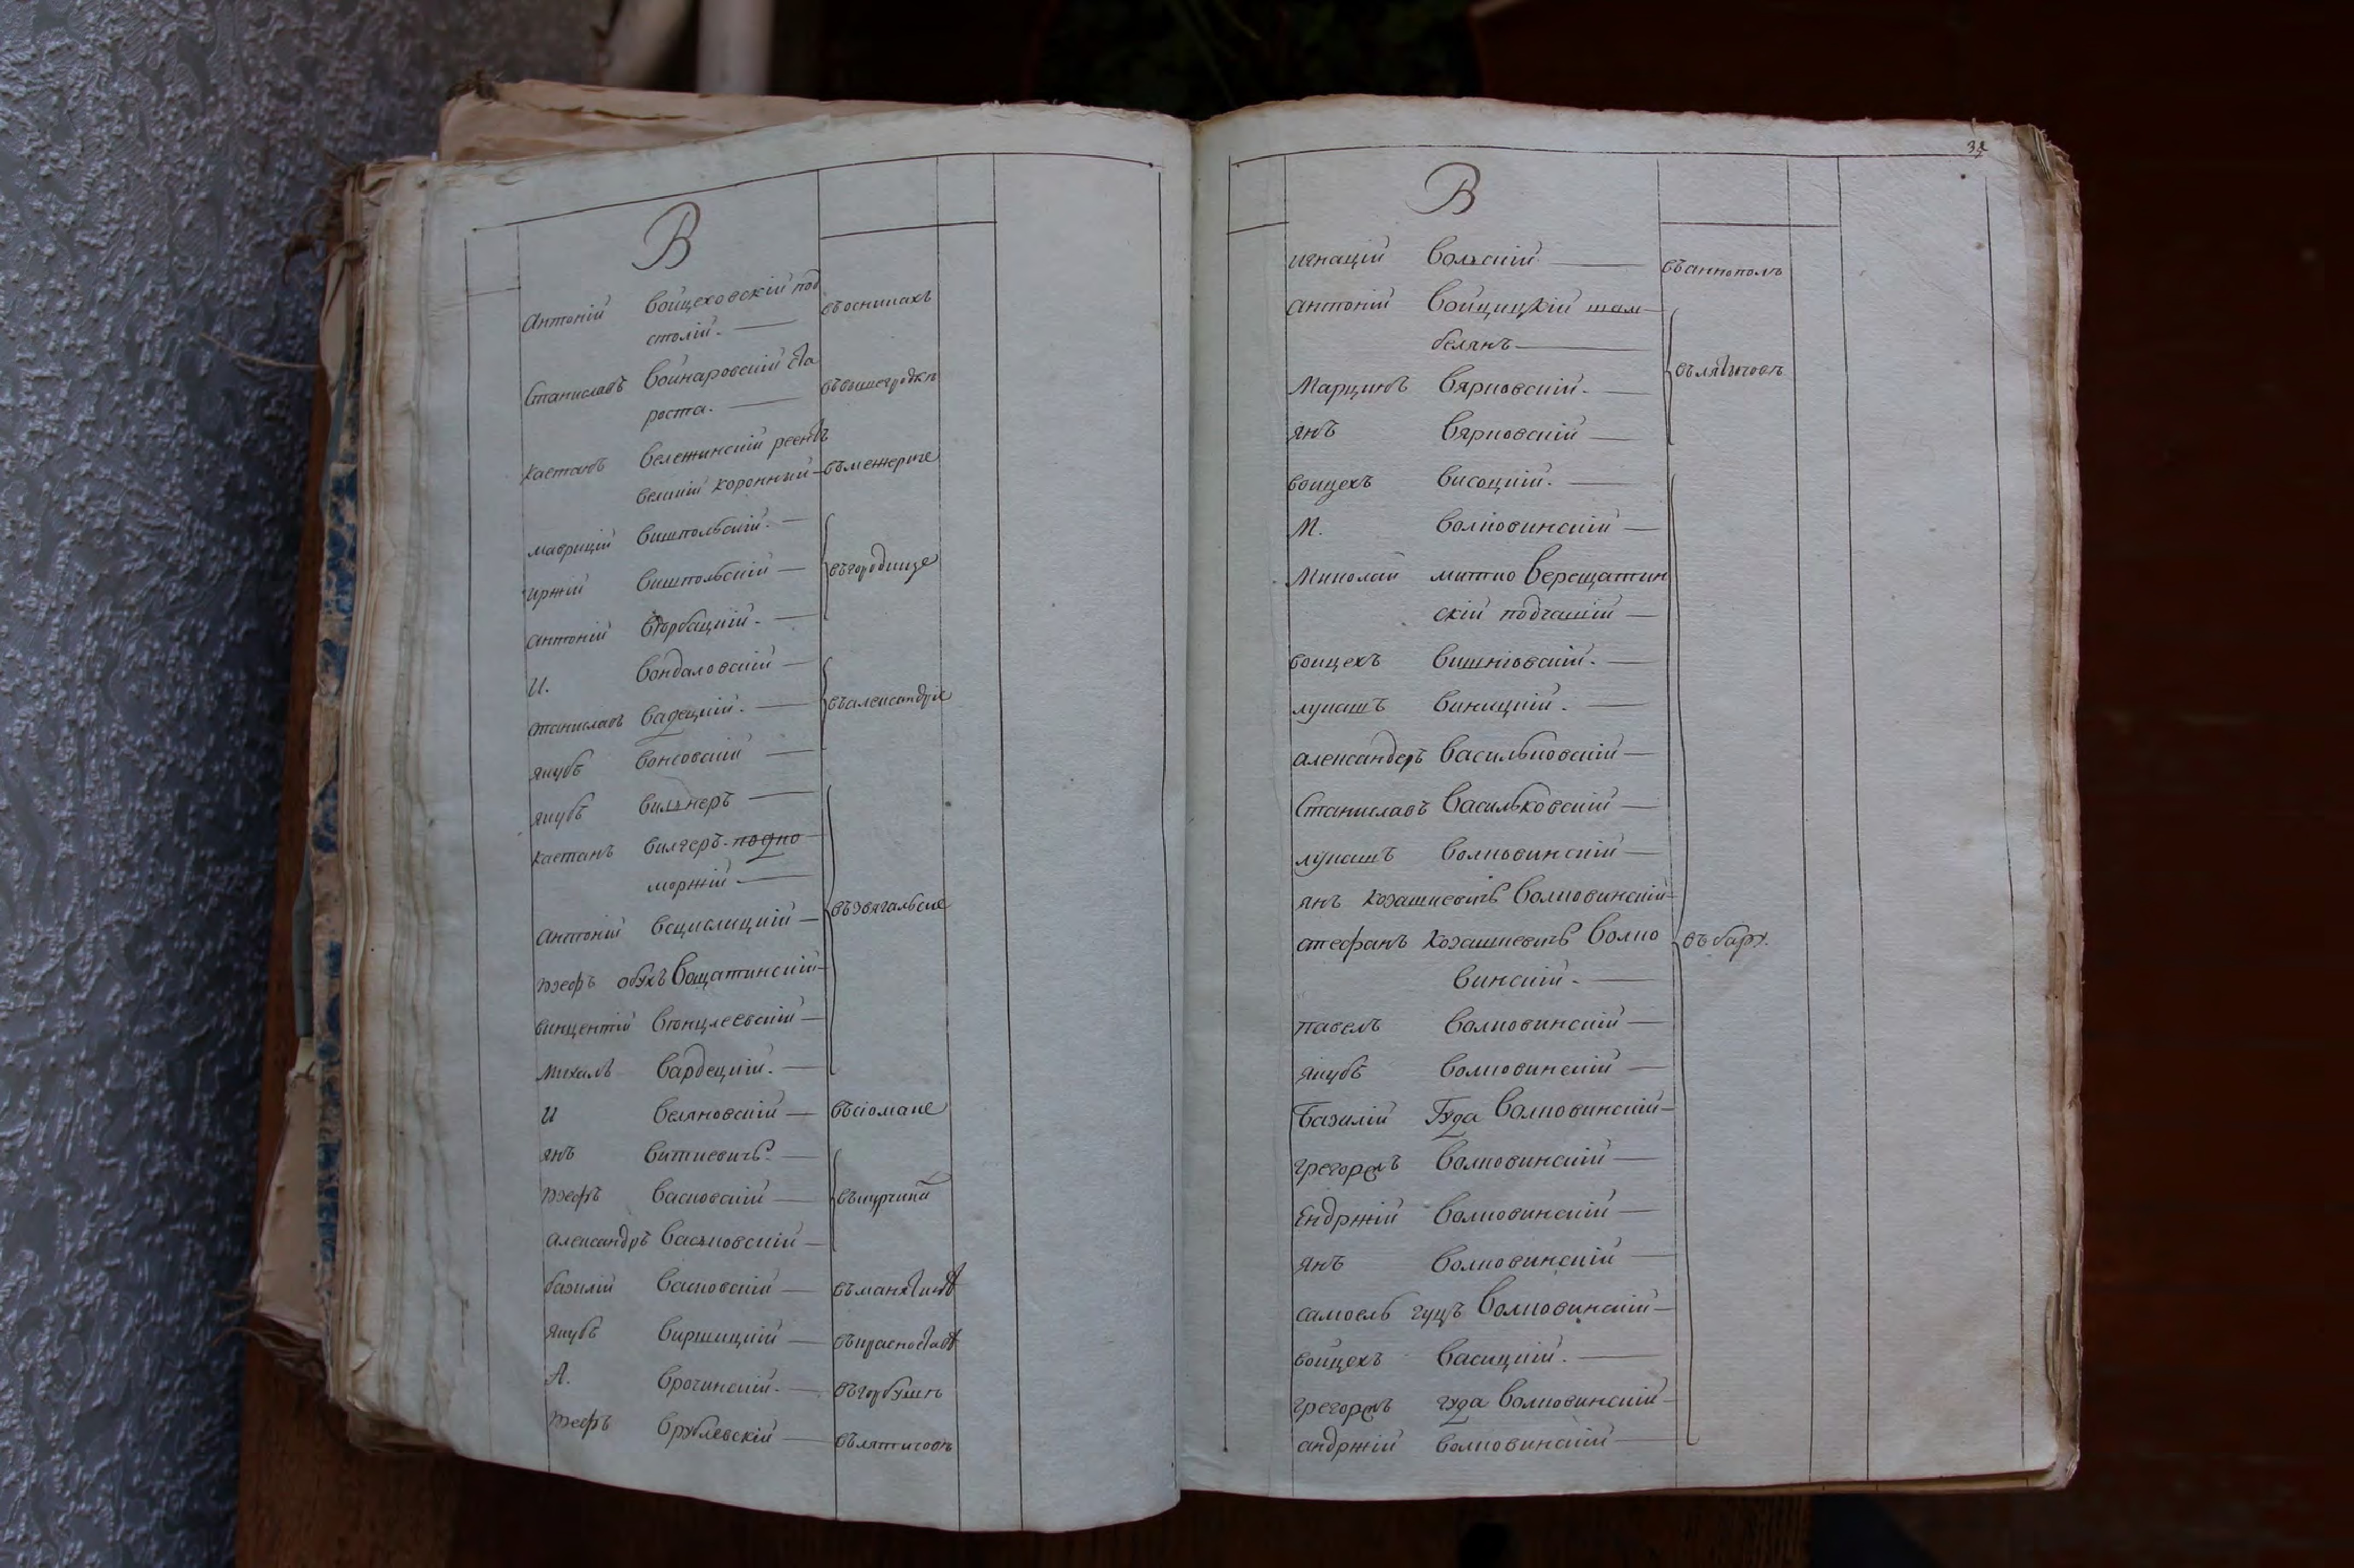 В
Антоній Войцеховскій под
столій. въ оснинахъ
Станиславъ Войнаровскій Ста
роста. въ вышегродкъ
Каетанъ Вележинскій реентъ
великій коронный въ межериче
маврицій Вишпольскій.
иржій Вишпольскій въ городище
антоній Вербацкій.
И. Вандаловскій
Станиславъ Вадецкій. въ александріе
якубъ Вонсовскій
якубъ Вильнеръ
каетанъ Вилгеръ подко
моржій
Антоній Вециелицкій въ звягалъске
юзефъ обухъ Вощатинскій
винцентій Вонцлеевскій
михалъ Вардецкій.
И Веляновскій въ сіомаке
янъ Виткевичъ.
юзефъ Васковскій
александръ Васьковскій
базилій Васковскій
якубъ Виршицкій въ красноставѣ
А. Врочинскій.
юзефъ Врублевскій въ лятичовъ
3
В
игнацій Вольскій въ аннополъ
антоній Войцицкій шам
белянъ въ лятичовъ
Марцинъ Вярковскій.
янъ Вярковскій
войцехъ Висоцкій.
М. Волковинскій
Миколай митко Верещатин
скій подчашій
войцехъ Вишніовскій.
лукашъ Виницкій.
александеръ Васильковскій
Станиславъ Васильковскій
лукашъ Волковинскій
янъ Козашкевичъ Волковинскій
стефанъ Козашкевичъ Волко въ барх.
винскій.
павелъ Волковинскій
якубъ Волковинскій
Базилій Гуда Волковинскій
грегоржъ Волковинскій
Ендржій Волковинскій
янъ Волковинскій
самоель гуцъ Волковинскій
войцехъ Васицкій.
грегоржъ гуда Волковинскій
андржій Волковинскій